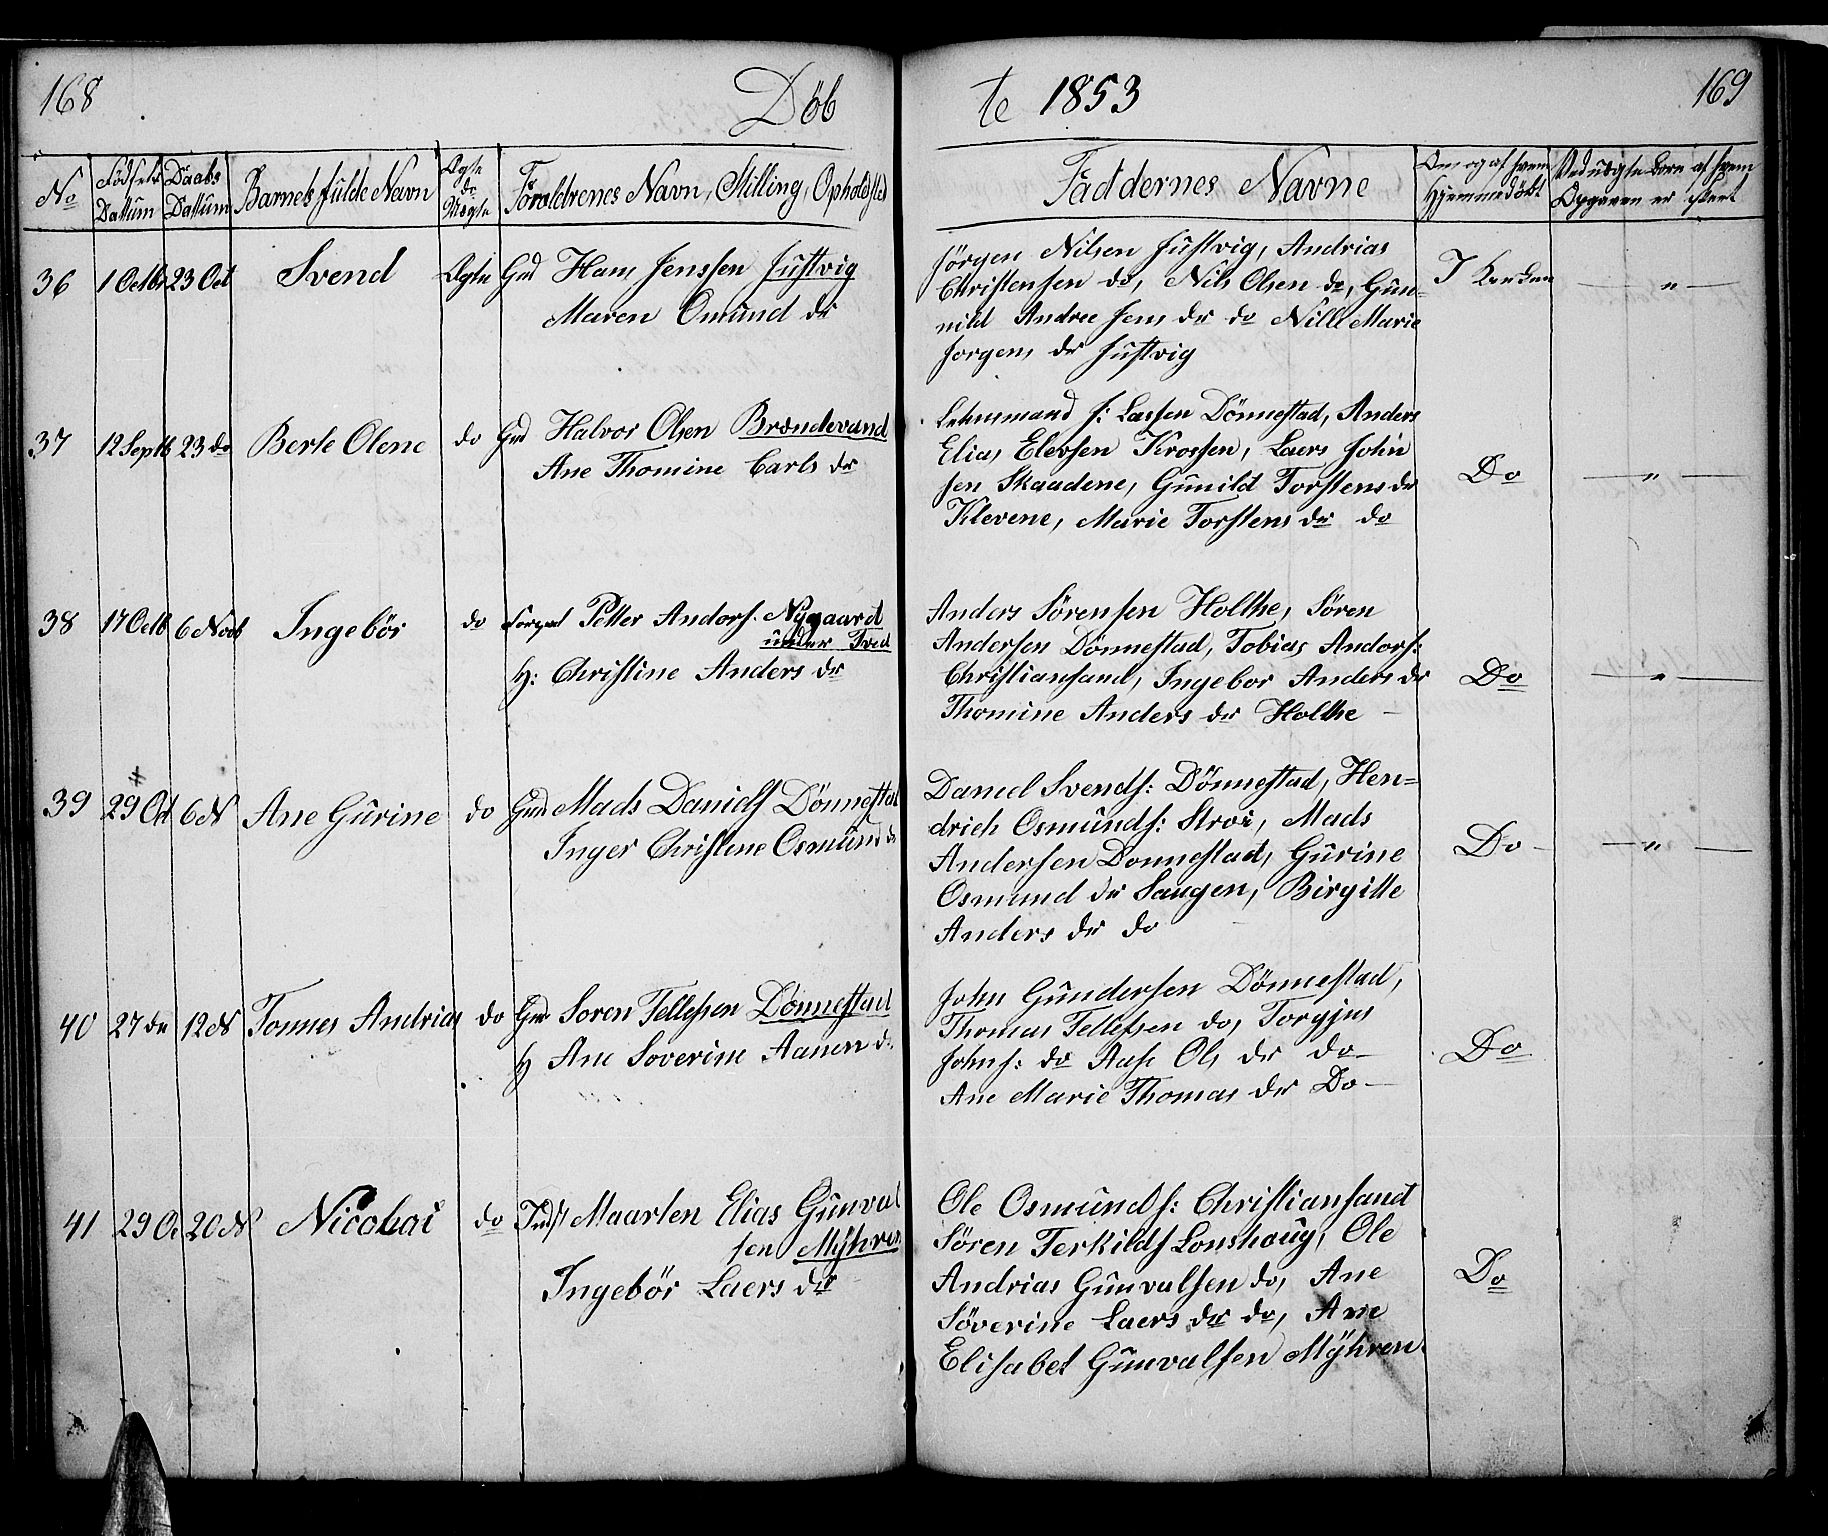 168
Döb
te 1853
169
No
Födsels Dattum
Daabs Dattum
Barnets fulde Navn
Ægte do Uægte
Forældrenes Navn, Stilling, Opholdsted
Faddernes Navne
Om og af hvem Hjemmedöbt
Ved uægte Born af hvem Opgaven er skeet
36 1 Octbr 23 Oct Svend Ægte Gmd Hans Jenssen Justvig
Maren Omund dr
Jörgen Nilsen Justvig, Andrias
Christensen do, Nils Olsen do, Gun-
nild Andreesens dr do Nille Marie
Jorgens dr Justvig
I Kirken
— " —
37 12 Septb 23 do Berte Olene do Gmd Halvor Olsen Brændevand
Ane Thomine Carls dr
Lehnsmand J: Lassen Dönnestad, Anders
Elias Elevsen Krossen, Laers John
sen Skaadene, Gunild Torstens dr
Klevene, Marie Torstens dr do
Do
— " —
38 17 Octb 6 Novb Ingebör do Petter Andors. Nygaard
under Tved
H: Christine Anders dr
Anders Sörensen Holthe, Sören
Andersen Dönnestad, Tobias Andors:
Christiansand, Ingebor Anders dr
Thomine Anders dr Holthe —
Do
— " —
39 29 Oct 6 N Ane Gurine do Gmd Mads Daniels Dönnestad
Inger Christine Osmund dr
Daniel Svends: Dönnestad, Hen-
drich Osmunds: Stroi, Mads
Andersen Donnestad, Gurine
Osmund dr Saugen, Birgitte
Anders dr do
Do —
— " —
40 27 do 12 N Tonnes Andrias do Gmd Soren Tellefsen Donnestad
H Ane Soverine Aanen d.
John Gundersen Dönnestad,
Thomas Tellefsen do, Torgjus
Johns: do Aase Ols dr do —
Ane Marie Thomas dr Do —
Do
41 29 Oc 20 N Nicolai do Indst Maarten Elias Gunval
sen Myhren
Ingebör Laers dr
Ole Osmunds: Christiansand
Sören Terkilds Lonshaug, Ole
Andrias Gunvalsen do, Ane
Söverine Laers dr do, Ane
Elisabet Gunvalsen Mÿhren.
Do